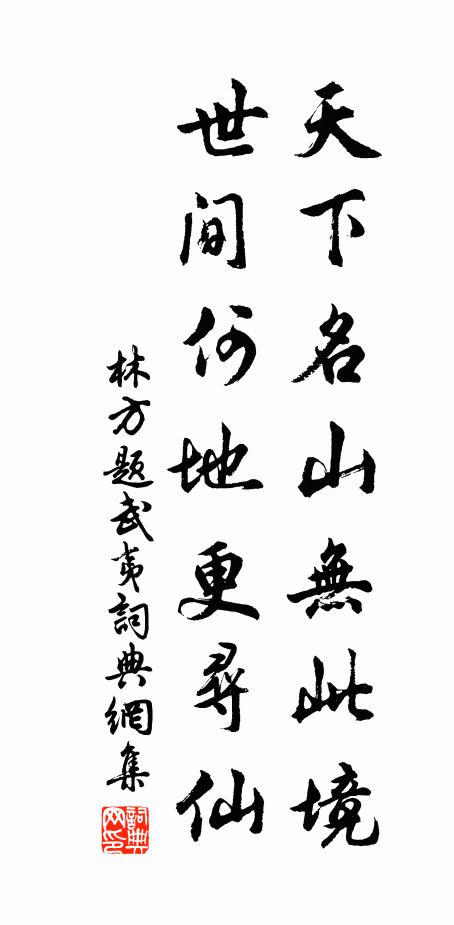 天下名山無此境
世間何地更尋仙
林方題武夷詞典網集
詞典网印